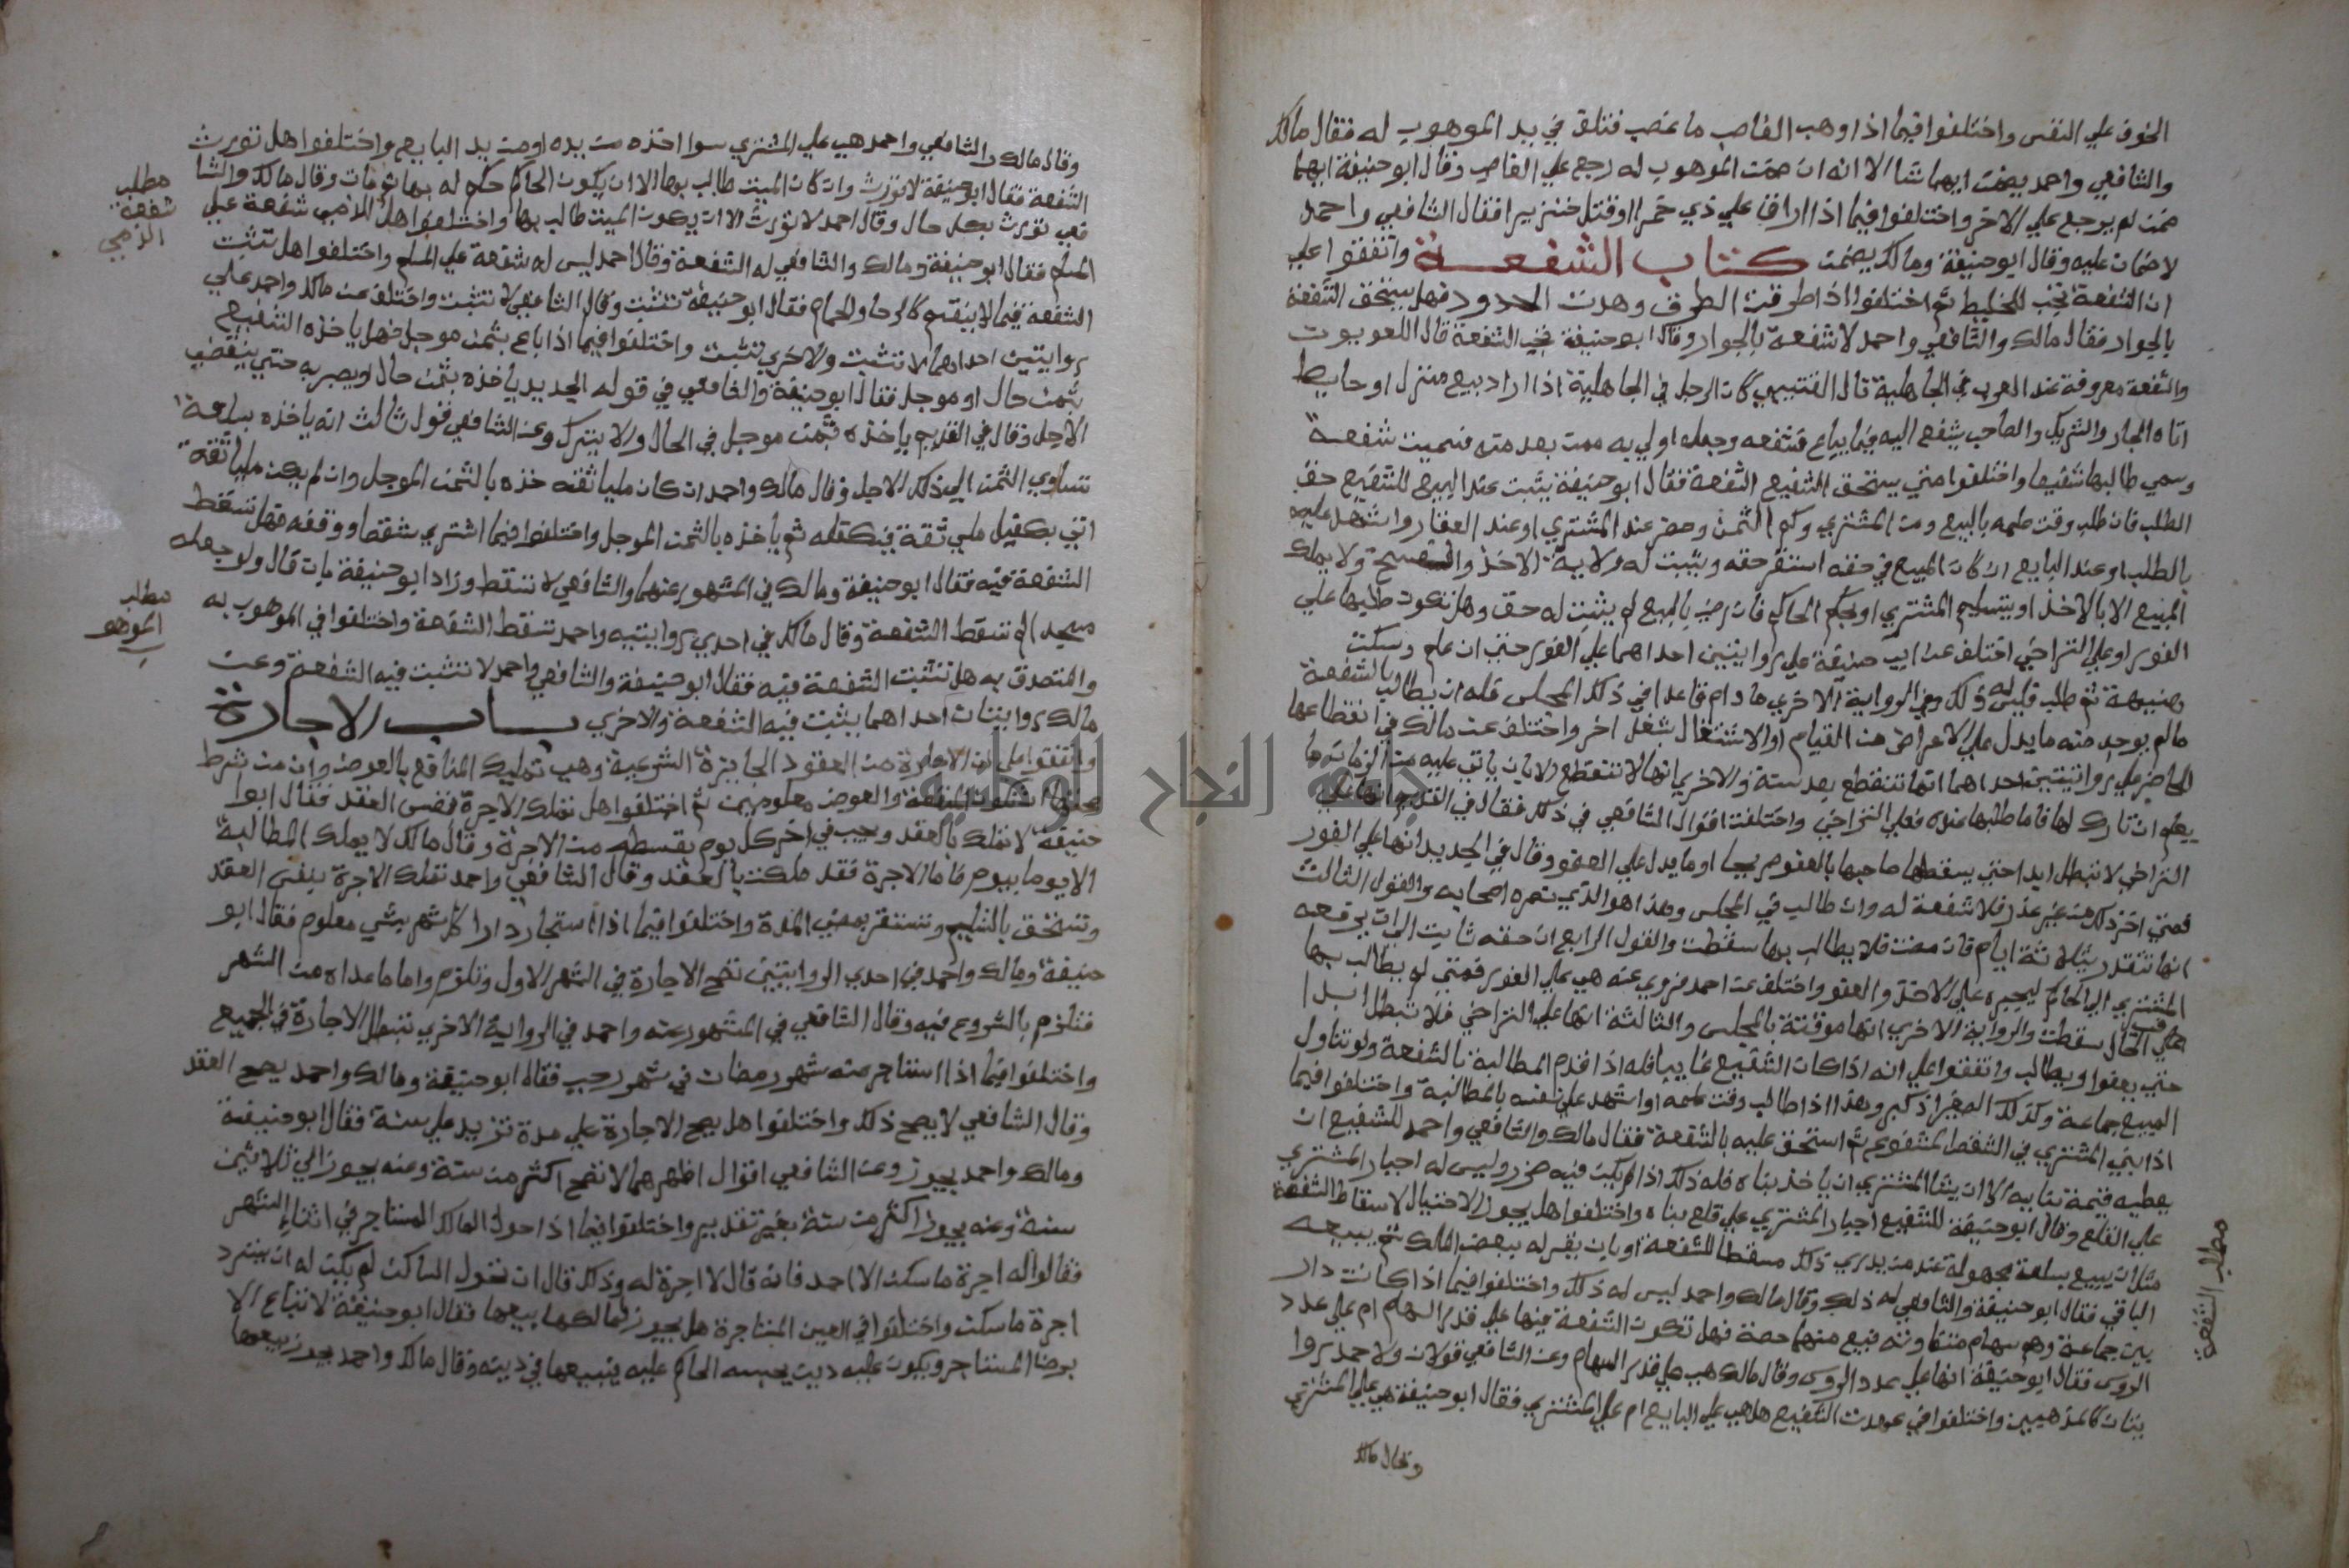 الخوف علي النفس واختلفوا فيما اذا وهب الغاصب ما غصب فتلف في يد الموهوب له فقال مالك
والشافعي واحمد يضمن ايهما شا الا انه ان ضمن الموهوب له رجع علي الغاصب وقال ابو حنيفة ايهما
ضمن لم يرجع علي الاخر واختلفوا فيما اذا اراق علي ذمي خمرا او قتل خنزيرا فقال الشافعي واحمد
لا ضمان عليه وقال ابو حنيفة ومالك يضمن كتاب الشفعة واتفقوا علي
ان الشفعة تجب للخليط ثم اختلفوا اذا طرقت الطرق وهدت الحدود فهل يستحق الشفعة
بالجوار فقال مالك والشافعي واحمد لا شفعة بالجوار وقال ابو حنيفة تجب الشفعة قال اللغويون
والشفعة معروفة عند العرب في الجاهلية قال القتيبي كان الرجل في الجاهلية اذا اراد بيع منزل او حايط
اتاه الجار والشريك والصاحب يشفع اليه فيما يباع فشفعه وجعله اولي به ممن بعد منه فسميت شفعة
وسمي طالبها شفيعا واختلفوا متي يستحق الشفيع الشفعة فقال ابو حنيفة يثبت عند البيع للشفيع حق
الطلب فان طلب وقت علمه بالبيع ومن المشتري وكم الثمن وحضر عند المشتري او عند العقار واشهد عليه
بالطلب او عند البايع ان كان المبيع في حقه استقر حقه ويثبت له ولاية الاخذ ولا يملك
المبيع الا بالاخذ او بتسليم المشتري او بحكم الحاكم فان رضي بالبيع لم يثبت له حق وهل تكون طلبها علي
الفور او علي التراخي اختلف عن ابي حنيفة علي روايتين احداهما علي الفور حتي ان علم وسكت
هنيهة ثم طلب فليس له ذلك وفي الرواية الاخري ما دام قاعدا في ذلك المجلس فله ان يطالب بالشفعة
ما لم يوجد منه ما يدل علي الاعراض من القيام او الاشتغال بشغل اخر واختلف عن مالك في انقطاعها
للحاضر علي روايتين احداهما انها تنقطع بعد سنة والاخري انها لا تنقطع الا بان ياتي عليه من الزمان ما
يعلم انه تارك لها فاما طلبها عنده فعلي التراخي واختلفت اقوال الشافعي في ذلك فقال في القديم انها علي
التراخي لا تبطل ابدا حتي يسقطها صاحبها بالعفو صريحا او ما يدل علي العفو وقال في الجديد انها علي الفور
فمتي اخر ذلك من غير عذر فلا شفعة له وان طالب في المجلس وهذا هو الذي نصره اصحابه والقول الثالث
انها تتقدر بثلاثة ايام فان مضت فلا يطالب بها سقطت والقول الرابع ان حقه ثابت الي ان يرفعه
المشتري الي الحاكم ليجبره علي الاخذ والعفو واختلف عن احمد فروي عنه هي علي الفور فمتي لم يطالب بها
في الحال سقطت والرواية الاخري انها موقتة بالمجلس والثالثة انها علي التراخي فلا تبطل ابدا
حتي يعفوا ويطالب واتفقوا علي انه اذا كان الشفيع غايبا فله اذا قدم المطالبة بالشفعة ولو تناول
المبيع جماعة وكذلك الصغير اذا كبر وهذا اذا طالب وقت علمه او اشهد علي نفسه بالمطالبة واختلفوا فيما
اذا بني المشتري في الشقص المشفوع ثم استحق عليه بالشفعة فقال مالك والشافعي واحمد للشفيع ان
يعطيه قيمة بنايه الا ان يشا المشتري ان ياخذ بناه فله ذلك اذا لم يكن فيه ضرر وليس له اجبار المشتري
علي القلع وقال ابو حنيفة للشفيع اجبار المشتري علي قلع بناه واختلفوا هل يجوز الاحتيال لاسقاط الشفعة
مثل ان يبيع بسلعة مجهولة عند من يدري ذلك مسقطا للشفعة او بان يقر له ببعض الملك ثم يبيعه
الباقي فقال ابو حنيفة والشافعي له ذلك وقال مالك واحمد ليس له ذلك واختلفوا فيما اذا كانت دار
بين جماعة وهم سهام متفاوتة فبيع منها حصة فهل تكون الشفعة فيها علي قدر السهام ام علي عدد
الروس فقال ابو حنيفة انها علي عدد الروس وقال مالك هي علي قدر السهام وعن الشافعي قولان ولاحمد روا
يتان كالمذهبين واختلفوا في عهدت الشفيع هل هي علي البايع ام علي المشتري فقال ابو حنيفة هي علي المشتري
وقال مالك
مطلب الشفعة
وقال مالك والشافعي واحمد هي علي المشتري سوا اخذه من يده او من يد البايع واختلفوا هل تورث
الشفعة فقال ابو حنيفة لا تورث وان كان الميت طالب بها الا ان يكون الحاكم حكم له بها ثم مات وقال مالك والشا
فعي تورث بكل حال وقال احمد لا تورث الا ان يكون الميت طالب بها واختلفوا هل للذمي شفعة علي
المسلم فقال ابو حنيفة ومالك والشافعي له الشفعة وقال احمد ليس له شفعة علي المسلم واختلفوا هل تثبت
الشفعة فيما لا ينقسم كالرحا والحمام فقال ابو حنيفة تثبت وقال الشافعي لا تثبت واختلف عن مالك واحمد علي
روايتين احداهما لا تثبت والاخري تثبت واختلفوا فيما اذا باع بثمن موجل فهل ياخذه الشفيع
بثمن حال او موجل فقال ابو حنيفة والشافعي في قوله الجديد ياخذه بثمن حال او يصبر به حتي ينقضي
الاجل وقال في القديم ياخذه بثمن موجل في الحال ولا يترك وعن الشافعي قول ثالث انه ياخذه بسلعة
تساوي الثمن الي ذلك الاجل وقال مالك واحمد ان كان مليا ثقه خذه بالثمن الموجل وان لم يكن مليا ثقة
اتي بكفيل ملي ثقة فيكفله ثم ياخذه بالثمن الموجل واختلفوا فيما اشتري شقصا ووقفه فهل تسقط
الشفعة فيه فقال ابو حنيفة ومالك في المشهور عنهما والشافعي لا تسقط وزاد ابو حنيفة بان قال ولو جعله
مسجدا لم تسقط الشفعة وقال مالك في احدي روايتيه واحمد تسقط الشفعة واختلفوا في الموهوب به
والمتصدق به هل تثبت الشفعة فيه فقال ابو حنيفة والشافعي واحمد لا تثبت فيه الشفعة وعن
مالك روايتان احداهما يثبت فيه الشفعة والاخري باب الاجارة
واتفقوا علي ان الاجارة من العقود الجايزة الشرعية وهي تمليك المنافع بالعوض وان من شرط
صحتها ان تكون المنفعة والعوض معلومين ثم اختلفوا هل تملك الاجرة بنفس العقد فقال ابوا
حنيفة لا تملك بالعقد ويجب في اخر كل يوم بقسطه من الاجرة وقال مالك لا يملك المطالبة
الا يوما بيوم فاما الاجرة فقد ملكت بالعقد وقال الشافعي واحمد تملك الاجرة بنفس العقد
وتستحق بالتسليم وتستقر بمضي المدة واختلفوا فيما اذا استجار دارا كل شهر بشي معلوم فقال ابو
حنيفة ومالك واحمد في احدي الروايتين تصح الاجارة في الشهر الاول وتلزم واما ما عداه من الشهر
فتلزم بالشروع فيه وقال الشافعي في المشهور عنه واحمد في الرواية الاخري تبطل الاجارة في الجميع
واختلفوا فيما اذا استاجر منه شهر رمضان في شهر رجب فقال ابو حنيفة ومالك واحمد يصح العقد
وقال الشافعي لا يصح ذلك واختلفوا هل يصح الاجارة علي مدة تزيد علي سنة فقال ابو حنيفة
ومالك واحمد يجوز وعن الشافعي اقوال اظهرهما لا تصح اكثر من سنة وعنه يجوز الي ثلاثين
سنة وعنه يجوز اكثر من سنة بغير تقدير واختلفوا فيما اذا حول المالك المستاجر في اثناء الشهر
فقالوا له اجرة ما سكن الا احمد فانه قال لا اجرة له وذلك قال ان تحول الساكن لم يكن له ان يسترد
اجرة ما سكن واختلفوا في العين المستاجرة هل يجوز لمالكها بيعها فقال ابو حنيفة لا تباع الا
برضا المستاجر ويكون عليه دين يحبسه الحاكم عليه فيبيعها في دينه وقال مالك واحمد يجوز بيعها
مطلب
شفعة
الذمي
مطلب
الموهو
ب
جامعة النجاح الوطنية